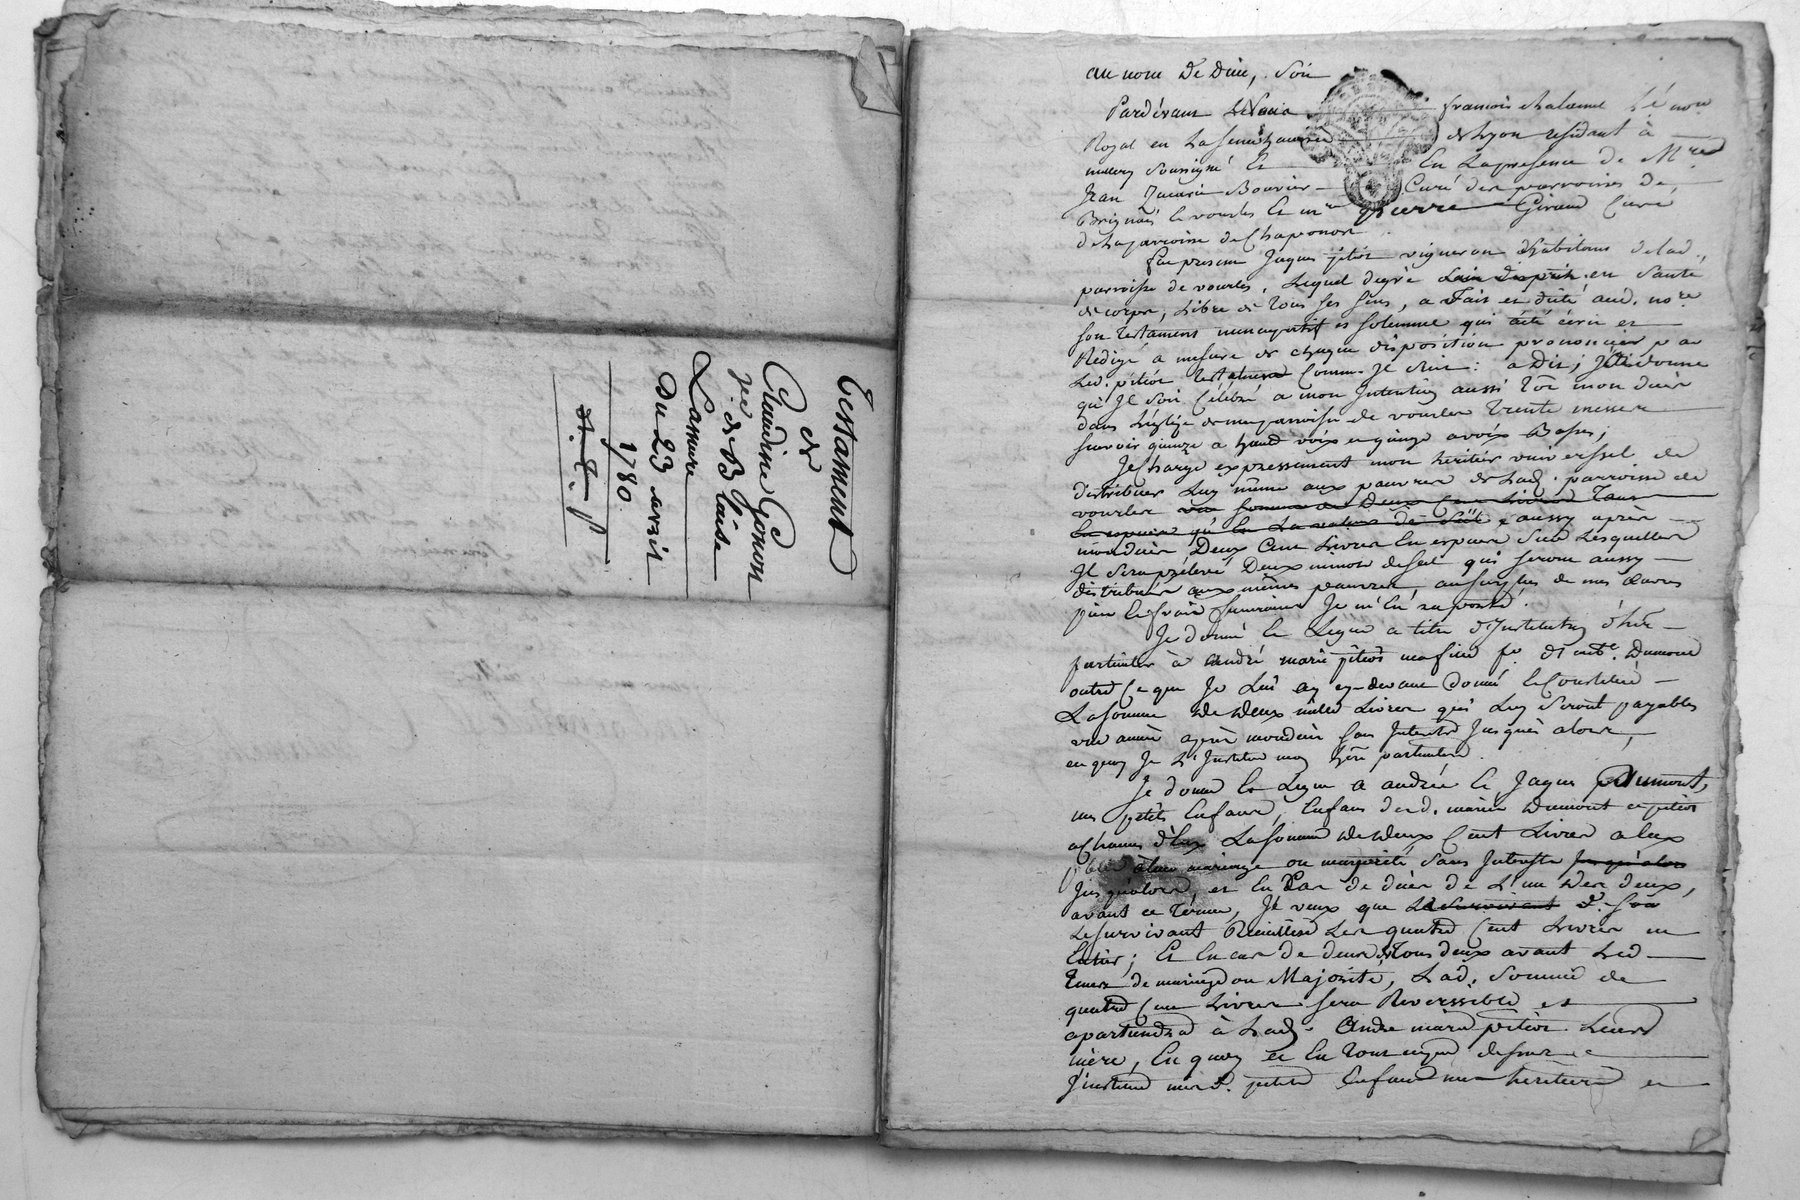 Testament
de
Claudine Gonon
ve. de Blaise
Lassure
Du 23 avril
1780
au nom De Dieu, soit
Pardevant françois
Royal en La senechaussée de Lyon residant à
millery soussigné Et En La presence de Mre
Jean Zacarie Bouvier Curé des parroisses De
Brignais Et vourles Et mre pierre Giraud Curé
de La parroisse de Chaponost.
fut present Jaques pitiot vigneron habitant de lad.
parroisse de vourles, Lequel de gré en santé
de corps, Libre de Tous ses sens, a Fait et dicté aud. nore
son Testament nuncupatif et solemnel qui a été écrit et
Rédigé a mesure de chaque disposition prononcées par
Led. pitiot testateur Comme Il suit: a Dit;
qu'Il soit Célébré a mon Intention aussi Tôt mon decès
dans L'église de ma parroisse de vourles Trente messes
scavoir quinze a haute voix et quinze a voix Basse;
Je Charge expressement mon héritier universsel de
distribuer Luy même aux pauvres de Lad. parroisse de
vourles une somme de Deux Cent Livres Tant
En espèce qu'En La valeur de sel & aussy après
mon decès Deux Cent Livres En espèce sur Lesquelles
Il sera prélevé Deux minots de sel qui seront aussy
distribués aux mêmes pauvres, au surplus de mes œuvres
pies Et frais funeraires Je m'En raporte.
Je donne Et Legue a titre d'Institution d'here
particulier à andré marie pitiot ma fille fe. Dumont
outre Ce que Je Lui ay cy-devant Donné Et Constitué
La somme De Deux mille Livres qui Luy seront payables
une année après mon decès sans Interets Jusqu'à alors,
en quoy Je L'Institue mon here particuliere.
Je donne Et Legue a andrée Et Jaques Dumont,
mes petits Enfans, Enfans de d. marie Dumont et pitiot
a Chacun d'Eux La somme De Deux Cent Livres a Eux
mariage ou majorité, sans Interests Jusqu'alors
Jusqu'alors, et En Cas de decès de L'un Des deux,
avant ce Terme, Je veux que Le survivant
Le survivant Recueille Les quatre Cent Livres en
Entier; Et En cas de decès de Tous deux avant Led.
Terme de mariage ou Majorité, Lad. somme de
quatre Cent Livres sera Reverssible et
apartiendra à Lad. Andre marie pitiot Leurs
mère, En quoy et En Tout
J'institue mesd. petits Enfans mes heritiers